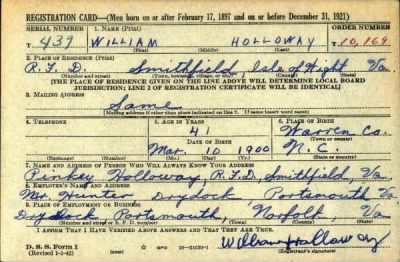 REGISTRATION CARD—(Men born on or after February 17, 1897 and on or before December 31, 1921)
SERIAL NUMBER 1. NAME (Print) ORDER NUMBER
T. 439 WILLIAM HOLLOWAY T10,169
(First) (Middle) (Last)
2. PLACE OF RESIDENCE (Print)
R.F.D. Smithfield, Isle of Wight Va.
(Number and street) (Town, township, village, or city) (County) (State)
[THE PLACE OF RESIDENCE GIVEN ON THE LINE ABOVE WILL DETERMINE LOCAL BOARD
JURISDICTION; LINE 2 OF REGISTRATION CERTIFICATE WILL BE IDENTICAL]
3. MAILING ADDRESS
Same
[Mailing address if other than place indicated on line 2. If same insert word same]
4. TELEPHONE 5. AGE IN YEARS 6. PLACE OF BIRTH
41 Warren Co.
DATE OF BIRTH (Town or county)
Mar. 10 1900 N.C.
(Exchange) (Number) (Mo.) (Day) (Yr.) (State or country)
7. NAME AND ADDRESS OF PERSON WHO WILL ALWAYS KNOW YOUR ADDRESS
Pinkey Holloway R.F.D, Smithfield Va.
8. EMPLOYER'S NAME AND ADDRESS
Mr. Drydock Portsmouth Va.
9. PLACE OF EMPLOYMENT OR BUSINESS
Dry dock Portsmouth, Norfolk Va.
(Number and street or R. F. D. number) (Town) (County) (State)
I AFFIRM THAT I HAVE VERIFIED ABOVE ANSWERS AND THAT THEY ARE TRUE.
D. S. S. Form 1
(Revised 1-1-42) GPO 16—21630-1 William Holloway
(Registrant's signature)